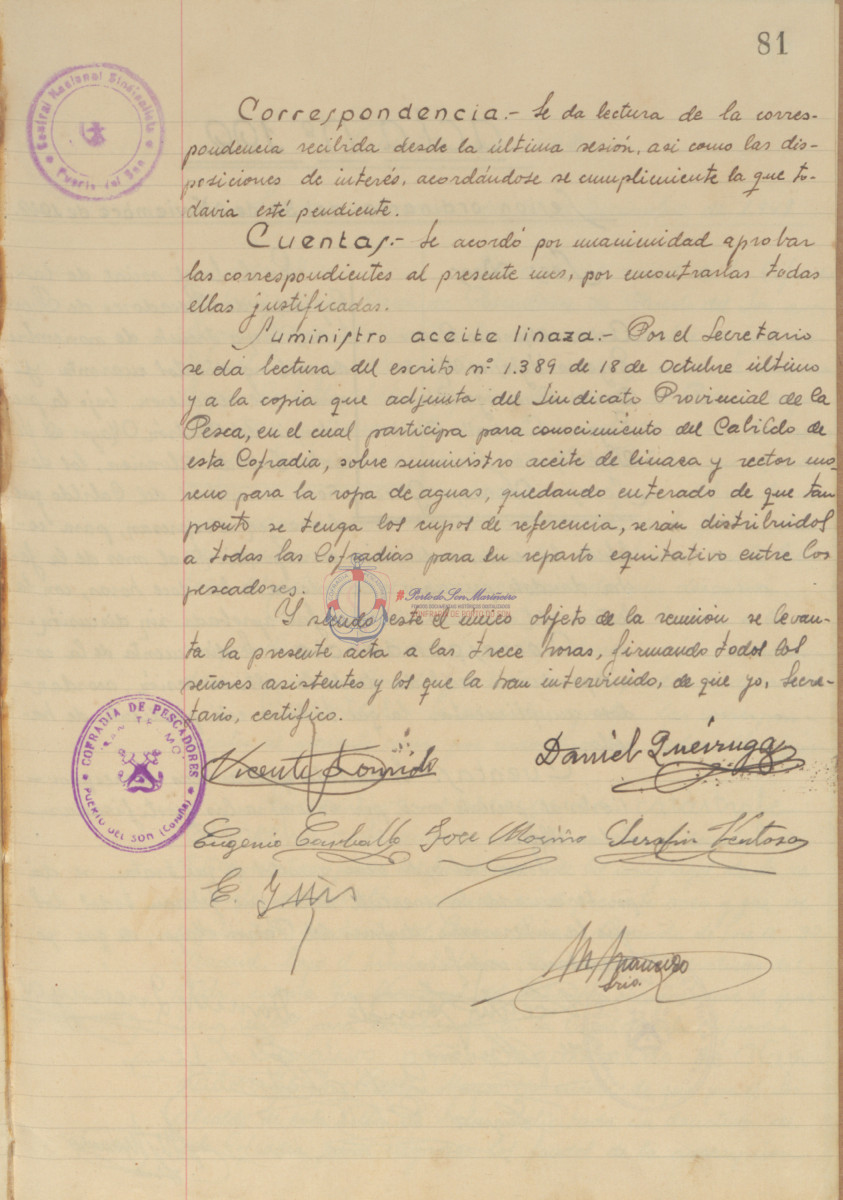 81
Central Nacional Sindicalista
Puerto del Son
Correspondencia.- Se da lectura de la corres-
pondencia recibida desde la última sesión, asi como las dis-
posiciones de interés, acordándose se cumplimiente la que to-
davia esté pendiente.
Cuentas.- Se acordó por unanimidad aprobar
las correspondientes al presente mes, por encontrarlas todas
ellas justificadas.
Suministro aceite linaza.- Por el Secretario
se dá lectura del escrito nº 1.389 de 18 de Octubre último
y a la copia que adjunta del Sindicato Provincial de la
Pesca, en el cual participa para conocimiento del Cabildo de
esta Cofradia, sobre suministro aceite de linaza y
reno para la ropa de aguas, quedando enterado de que tan
pronto se tenga los cupos de referencia, serán distribuidos
a todas las Cofradias para su reparto equitativo entre los
pescadores.
#PortodoSonMariñeiro
COFRADÍA DE PORTO DO SON
Y siendo este el único objeto de la reunión se levan-
ta la presente acta a las trece horas, firmando todos los
señores asistentes y los que la han intervinido, de que yo, Secre-
tario, certifico.
COFRADIA DE PESCADORES
SAN TELMO
PUERTO DEL SON (Coruña)
Vicente Daniel Queiruga
Eugenio Carballo Jose Moriño Serafin Ventoso
E.
M.
Srio.